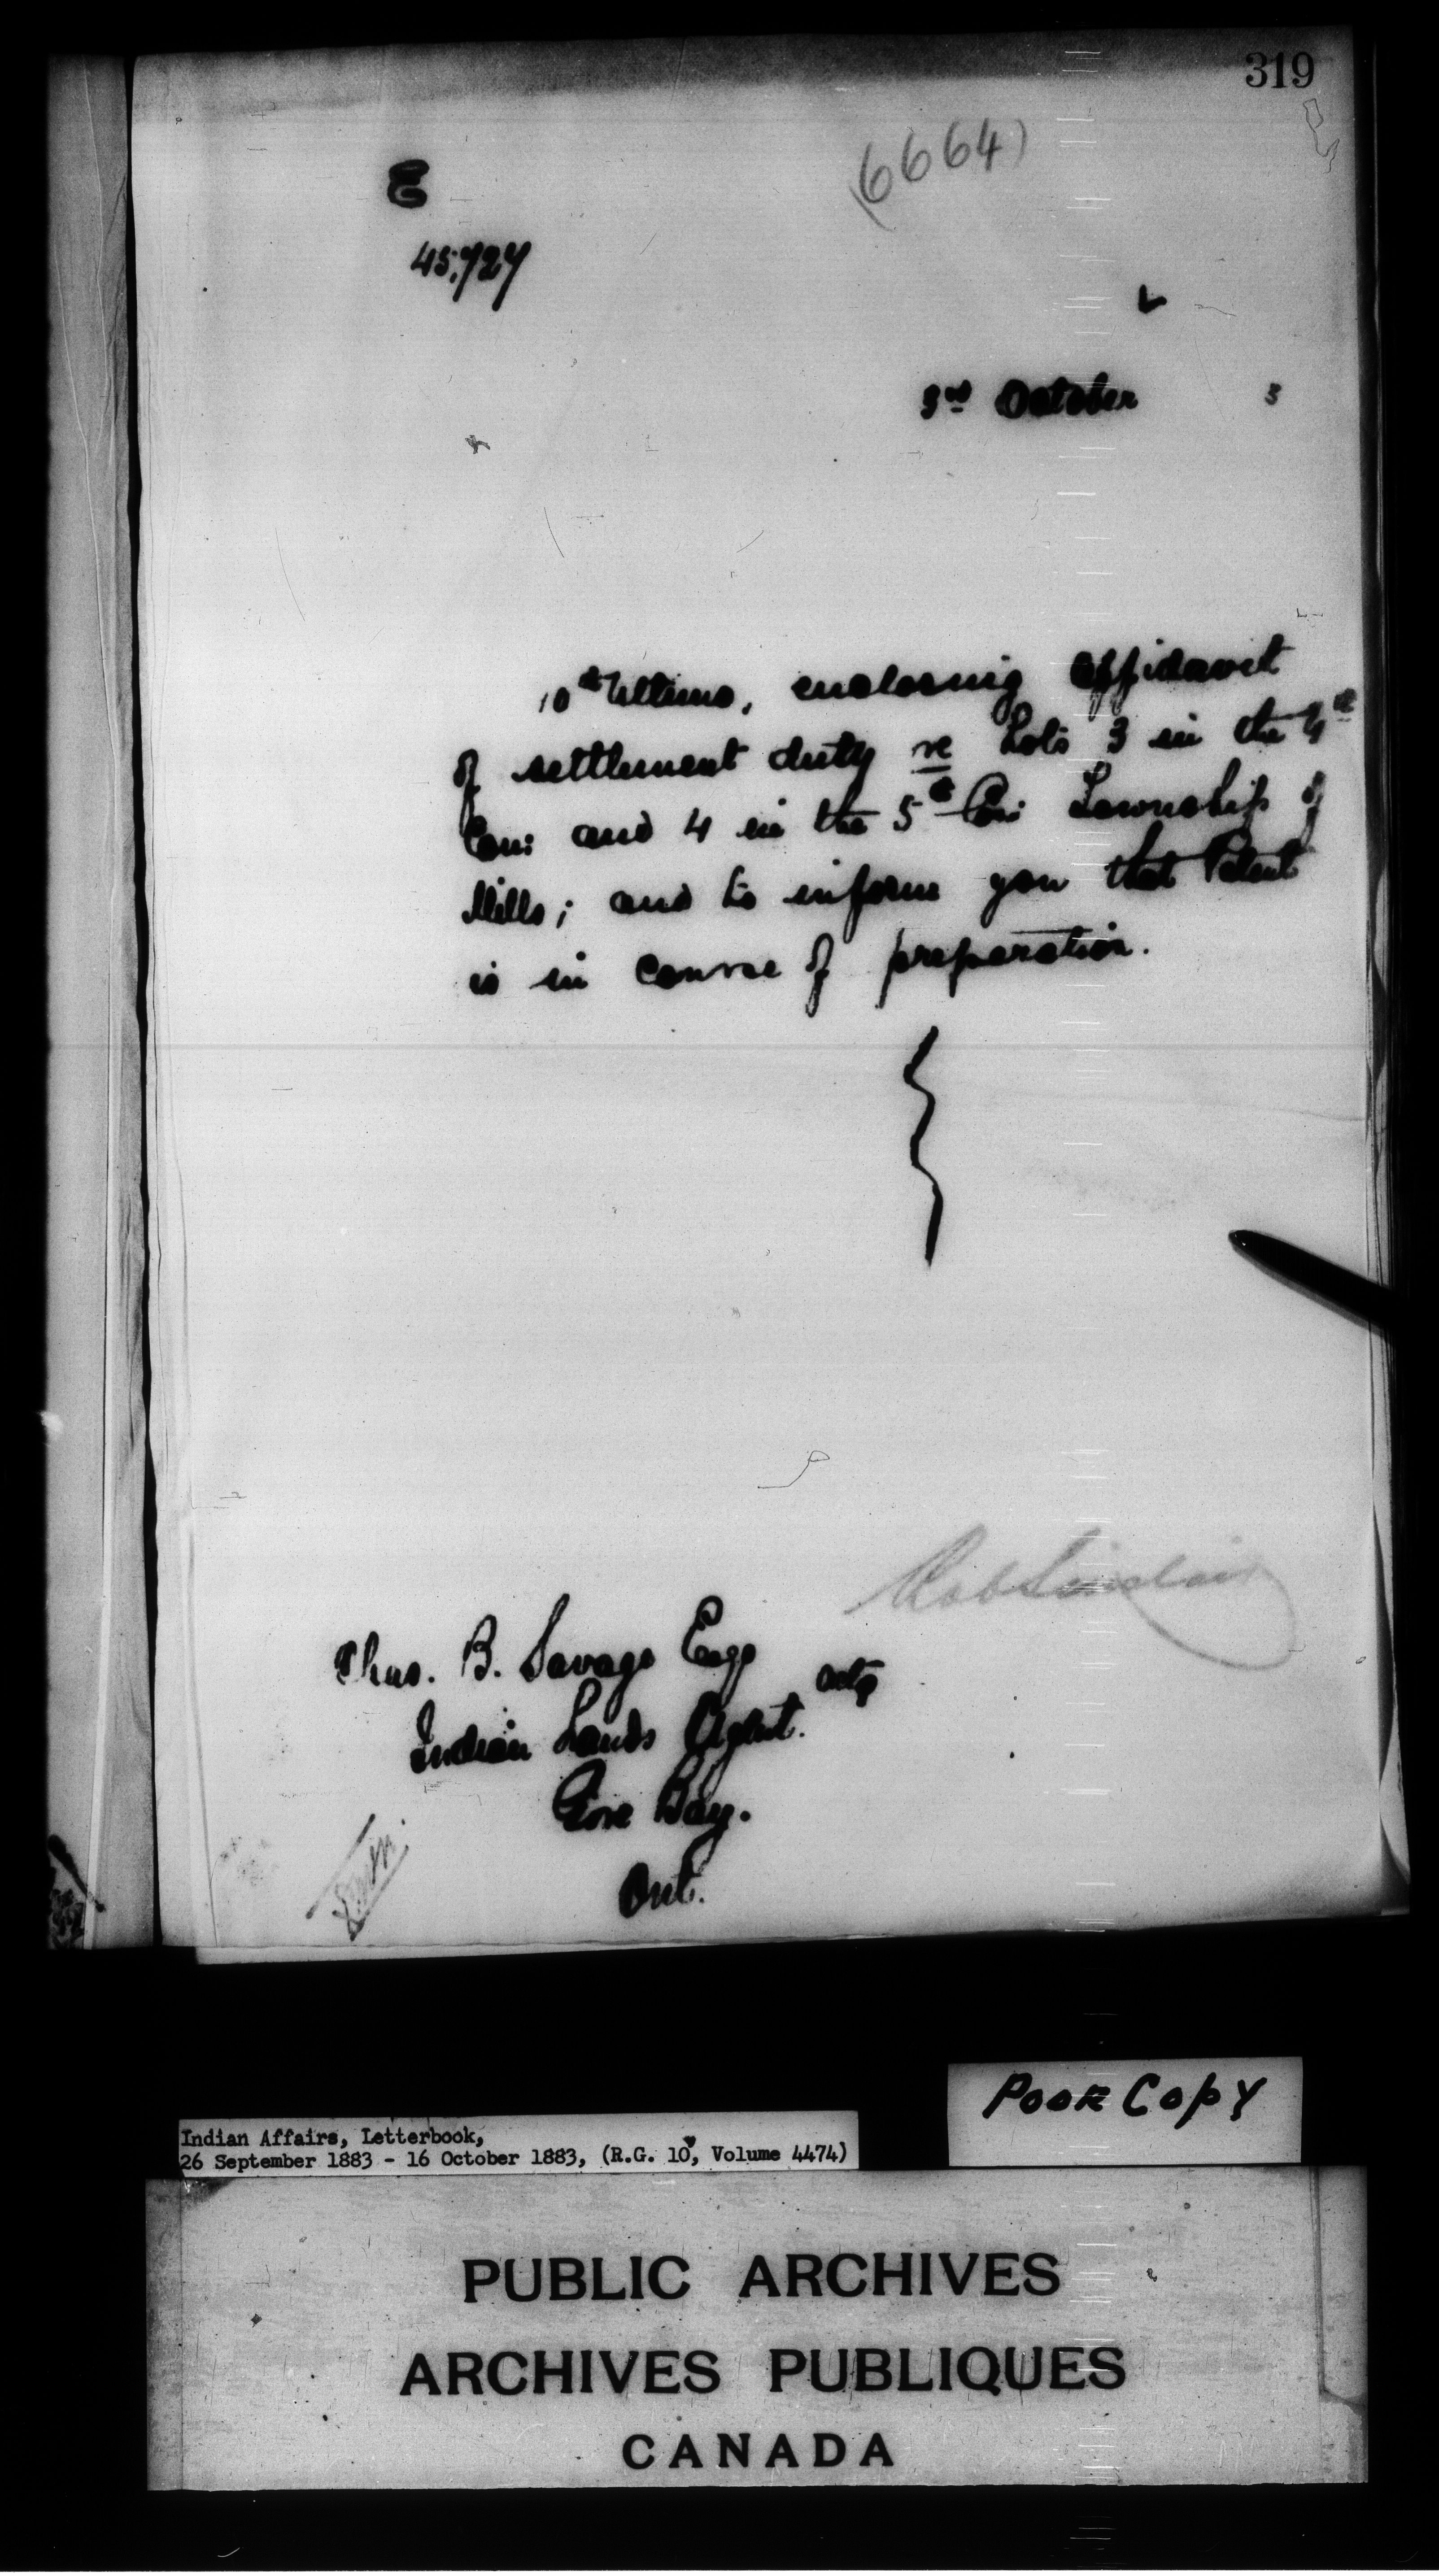 319
(6664)
E
45,727
3rd October 3
10th Ultimo, enclosing affidavit
of settlement duty re Lots 3 in the 4th
Con: and 4 in the 5th Con: Township of
Mills; and to inform you that Patent
is in course of preparation.
Rob Sinclair
actg
Chas. B. Savage Esqe
Indian Lands Agent.
Gore Bay.
Ont.
Poor Copy
Indian Affairs, Letterbook,
26 September 1883 - 16 October 1883, (R.G. 10, Volume 4474)
PUBLIC ARCHIVES
ARCHIVES PUBLIQUES
CANADA